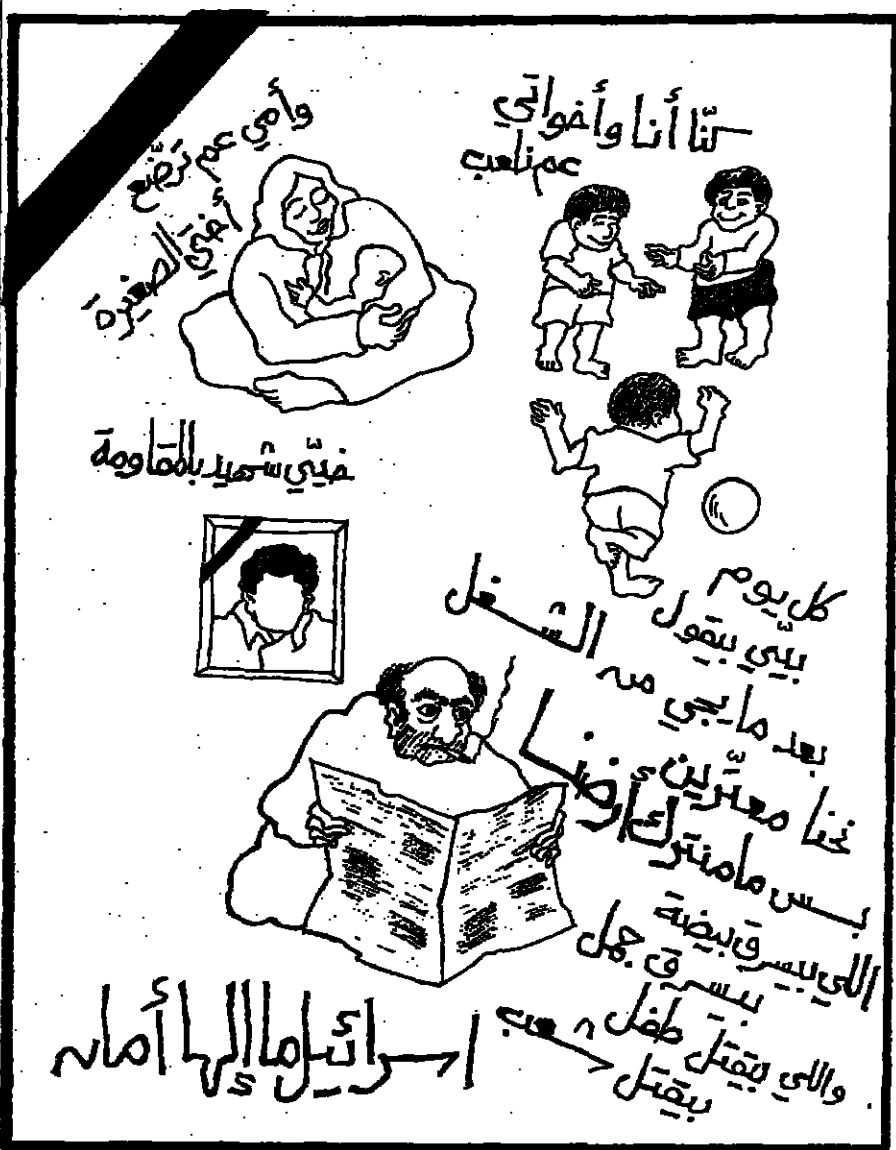 كنّا أنا وأخواتي
عم نلعب
وأمي عم ترضّع
أختي الصغيرة
خيّي شهيد بالمقاومة
كل يوم
بيّي بيقول
بعد ما يجي من الشغل
نحنا معتّرين
بس ما منترك أرضنا
اللي بيسرق بيضة
بيسرق جمل
واللي بيقتل طفل
بيقتل شعب
اسرائيل ما إلها أمان